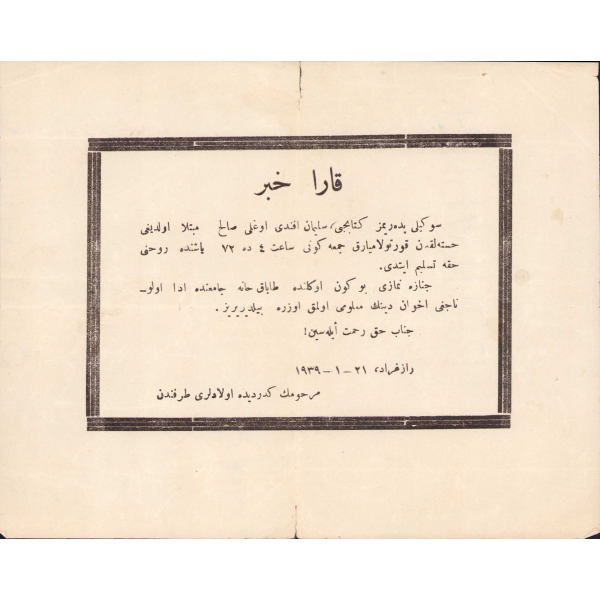 قارا خبر
سوكیلی پدەریمز كتابجی سلیمان افندی اوغلی صالح مبتلا اولدیغی
خستەلقدن قورتولامیارق جمعه كونی ساعت ٤ ده ٧٢ یاشنده روحنی
حقه تسلیم ایتدی.
جنازه نمازی بو كون اوكلنده طاباق خانه جامعنده ادا اولو-
ناجغی اخوان دینك معلومی اولمق اوزره بیلدیریریز.
جناب حق رحمت أیله سین!
رازغراد، ٢١-١-١٩٣٩
مرحومك كدردیده اولادلری طرفندن